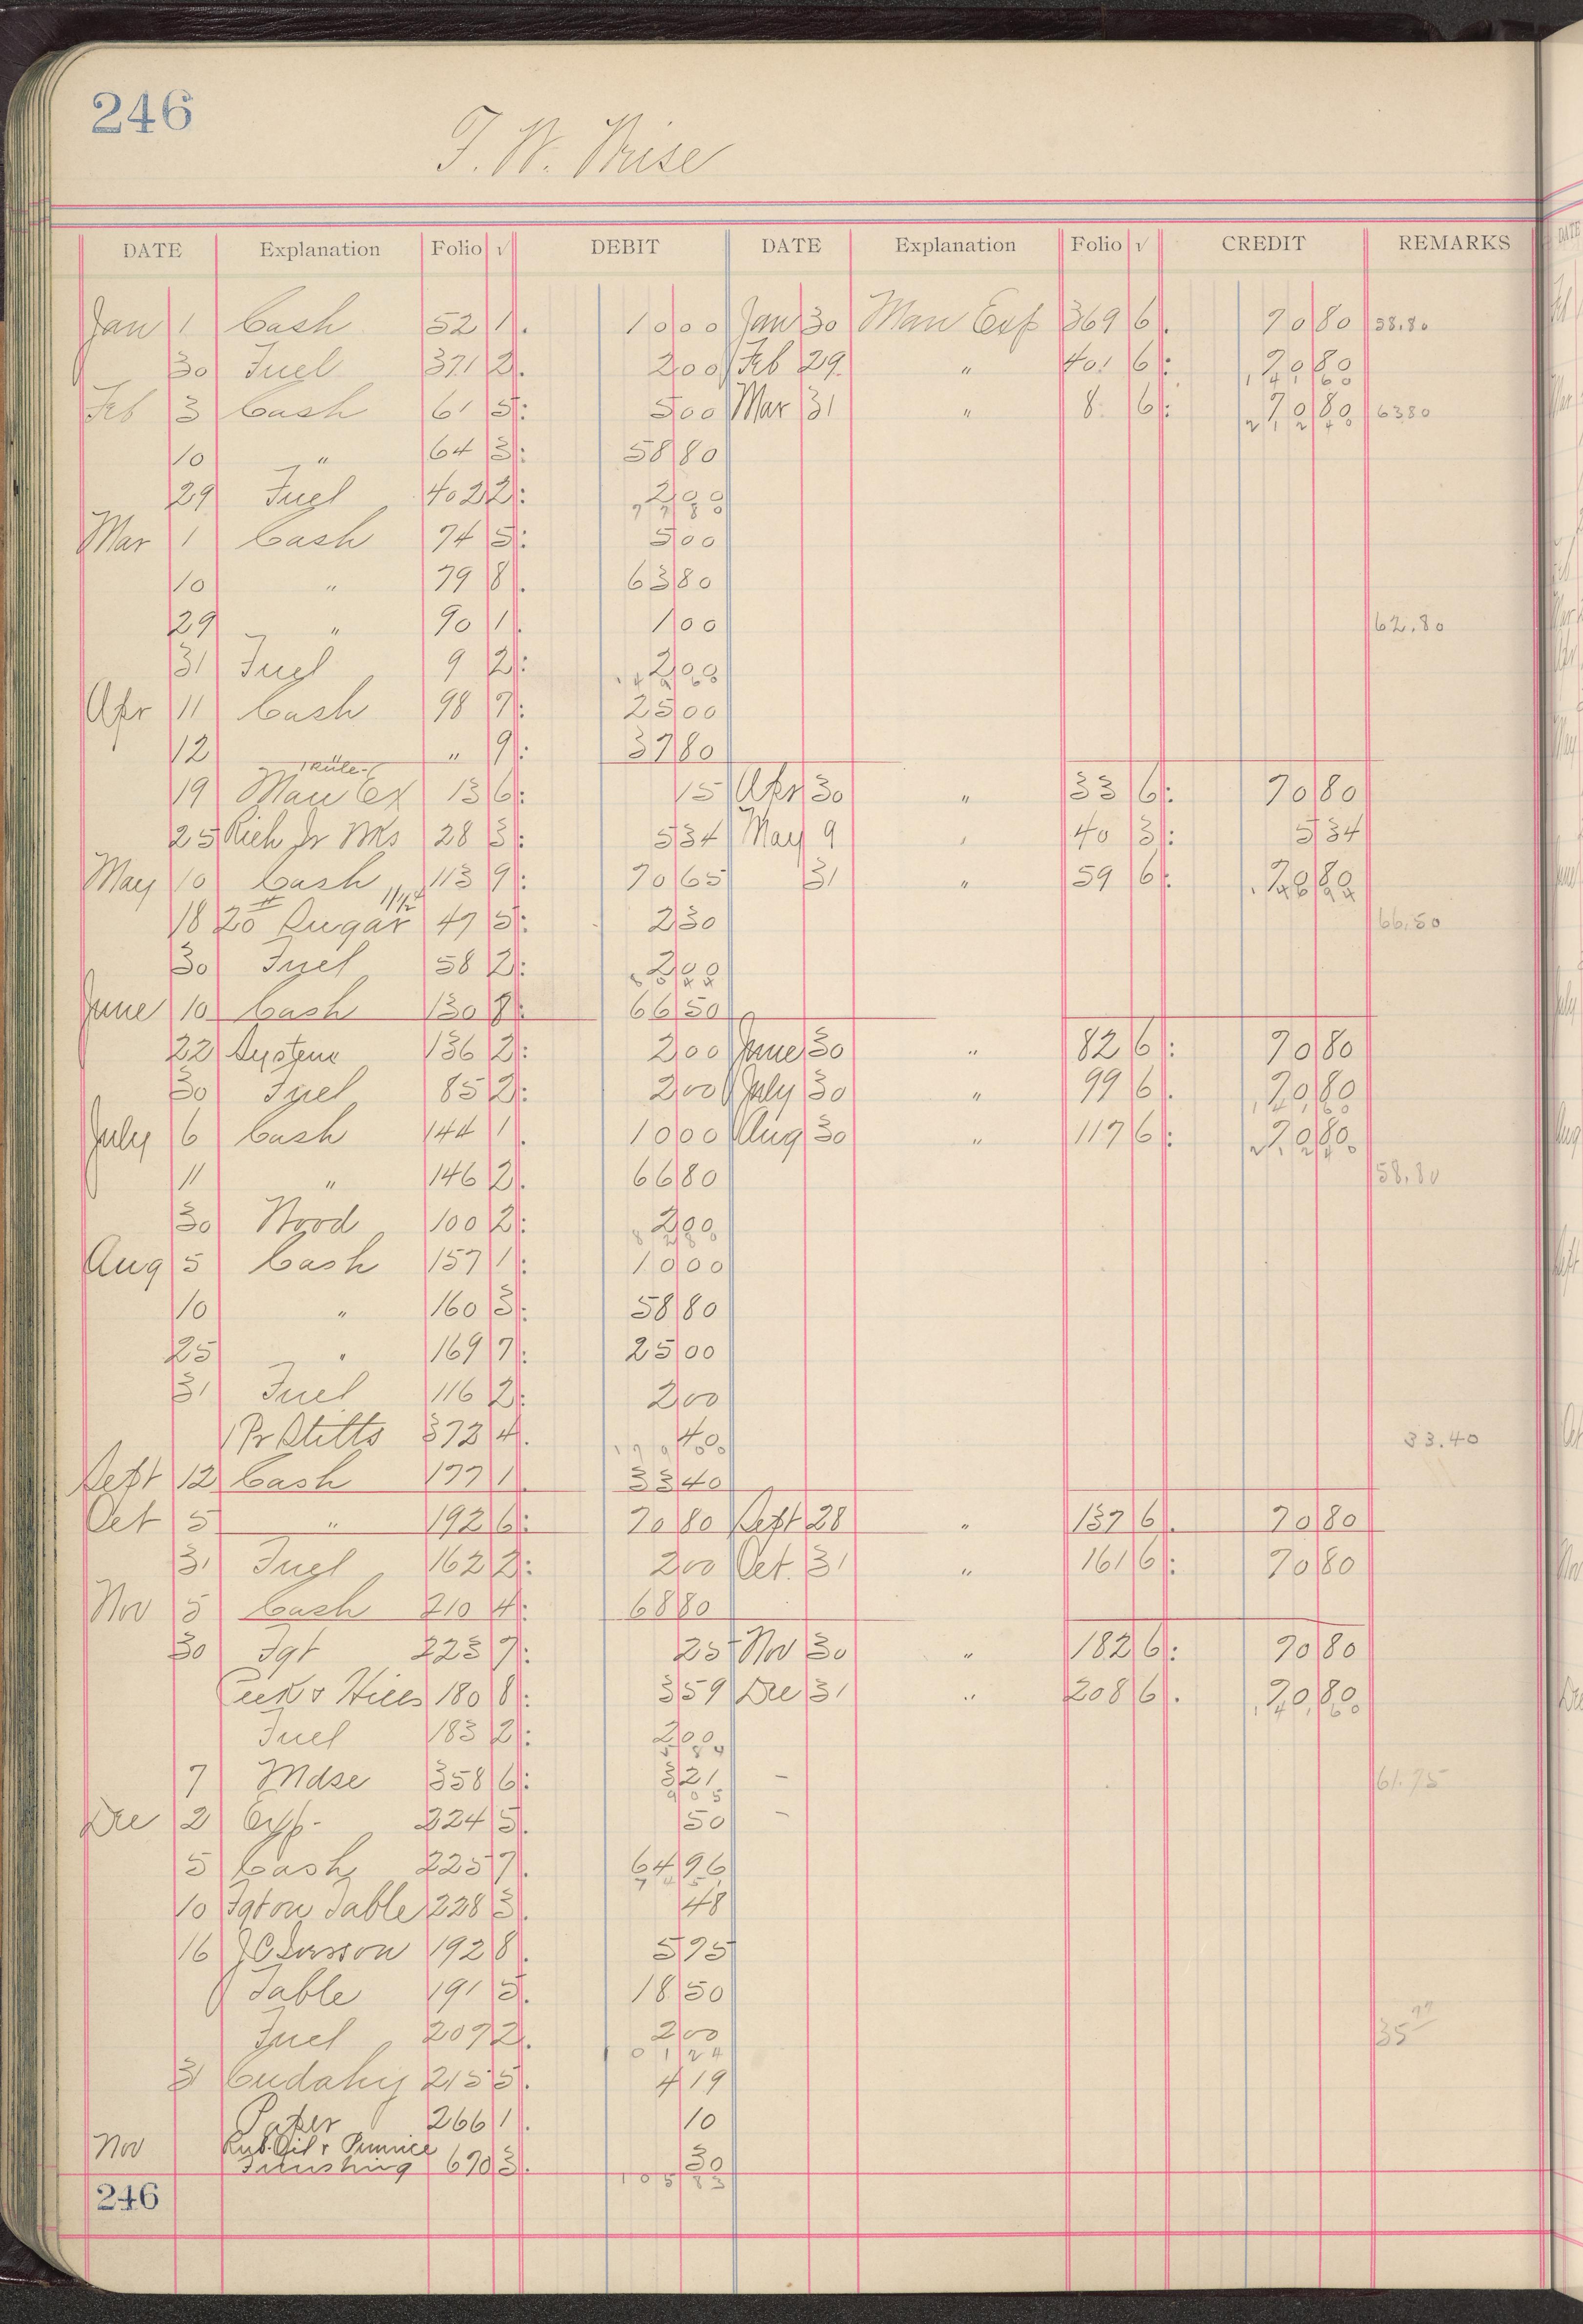 246
T. W. Wise
DATE Explanation Folio √ DEBIT DATE Explanation Folio √ CREDIT REMARKS
Jan 1 Cash 52 1. 10 00 Jan 30 Man Exp 369 6. 70 80 58.80
30 Fuel 371 2. 2 00 Feb 29 " 401 6: 70 80
141 60
Feb 3 Cash 61 5: 5 00 Mar 31 " 8 6: 70 80 63 80
212 40
10 " 64 3: 58 80
29 Fuel 402 2: 2 00
77 80
Mar 1 Cash 74 5: 5 00
10 " 79 8. 63 80
29 " 90 1. 1 00 62.80
31 Fuel 9 2: 2 00
Apr 11 Cash 98 7: 25 00
12 " 9: 37 80
1 Rule
19 Man Ex 13 6: 15 Apr 30 " 33 6: 70 80
25 Rich Jr Wks 28 3: 5 34 May 9 " 40 3: 5 34
May 10 Cash 113 9: 70 65 31 " 59 6: 70 80
18 20# Sugar 11 1/2 47 5: 2 30 66.50
30 Fuel 58 2: 2 00
June 10 Cash 130 8: 66 50
22 System 136 2: 2 00 June 30 " 82 6: 70 80
30 Fuel 85 2: 2 00 July 30 " 99 6. 70 80
141 60
July 6 Cash 144 1. 10 00 Aug 30 " 117 6: 70 80
212 40
11 " 146 2. 66 80 58.80
30 Wood 100 2: 2 00
Aug 5 Cash 157 1: 10 00
10 " 160 3: 58 80
25 " 169 7: 25 00
31 Fuel 116 2: 2 00
1 Pr Stilts 372 4. 40 33.40
179 00
Sept 12 Cash 177 1. 33 40
Oct 5 " 192 6: 70 80 Sept 28 " 137 6. 70 80
31 Fuel 162 2: 2 00 Oct. 31 " 161 6: 70 80
Nov 5 Cash 210 4: 68 80
30 Fgt 223 7: 25 Nov 30 " 182 6: 70 80
180 8: 3 59 Dec 31 " 208 6. 70 80
141 60
Fuel 183 2: 2 00
5 84
7 Mdse 358 6: 3 21 – 61.75
9 05
Dec 2 Exp. 224 5. 50 –
5 Cash 225 7. 64 96
10 Fgt on Table 228 3. 48
16 192 8. 5 75
1 Table 191 5. 18 50
Fuel 207 2. 2 00 35 77
101 24
31 Cudahy 215 5. 4 19
Paper 266 1. 10
Nov Rub. Oil & Pumice
Finishing 670 3. 30
105 83
246